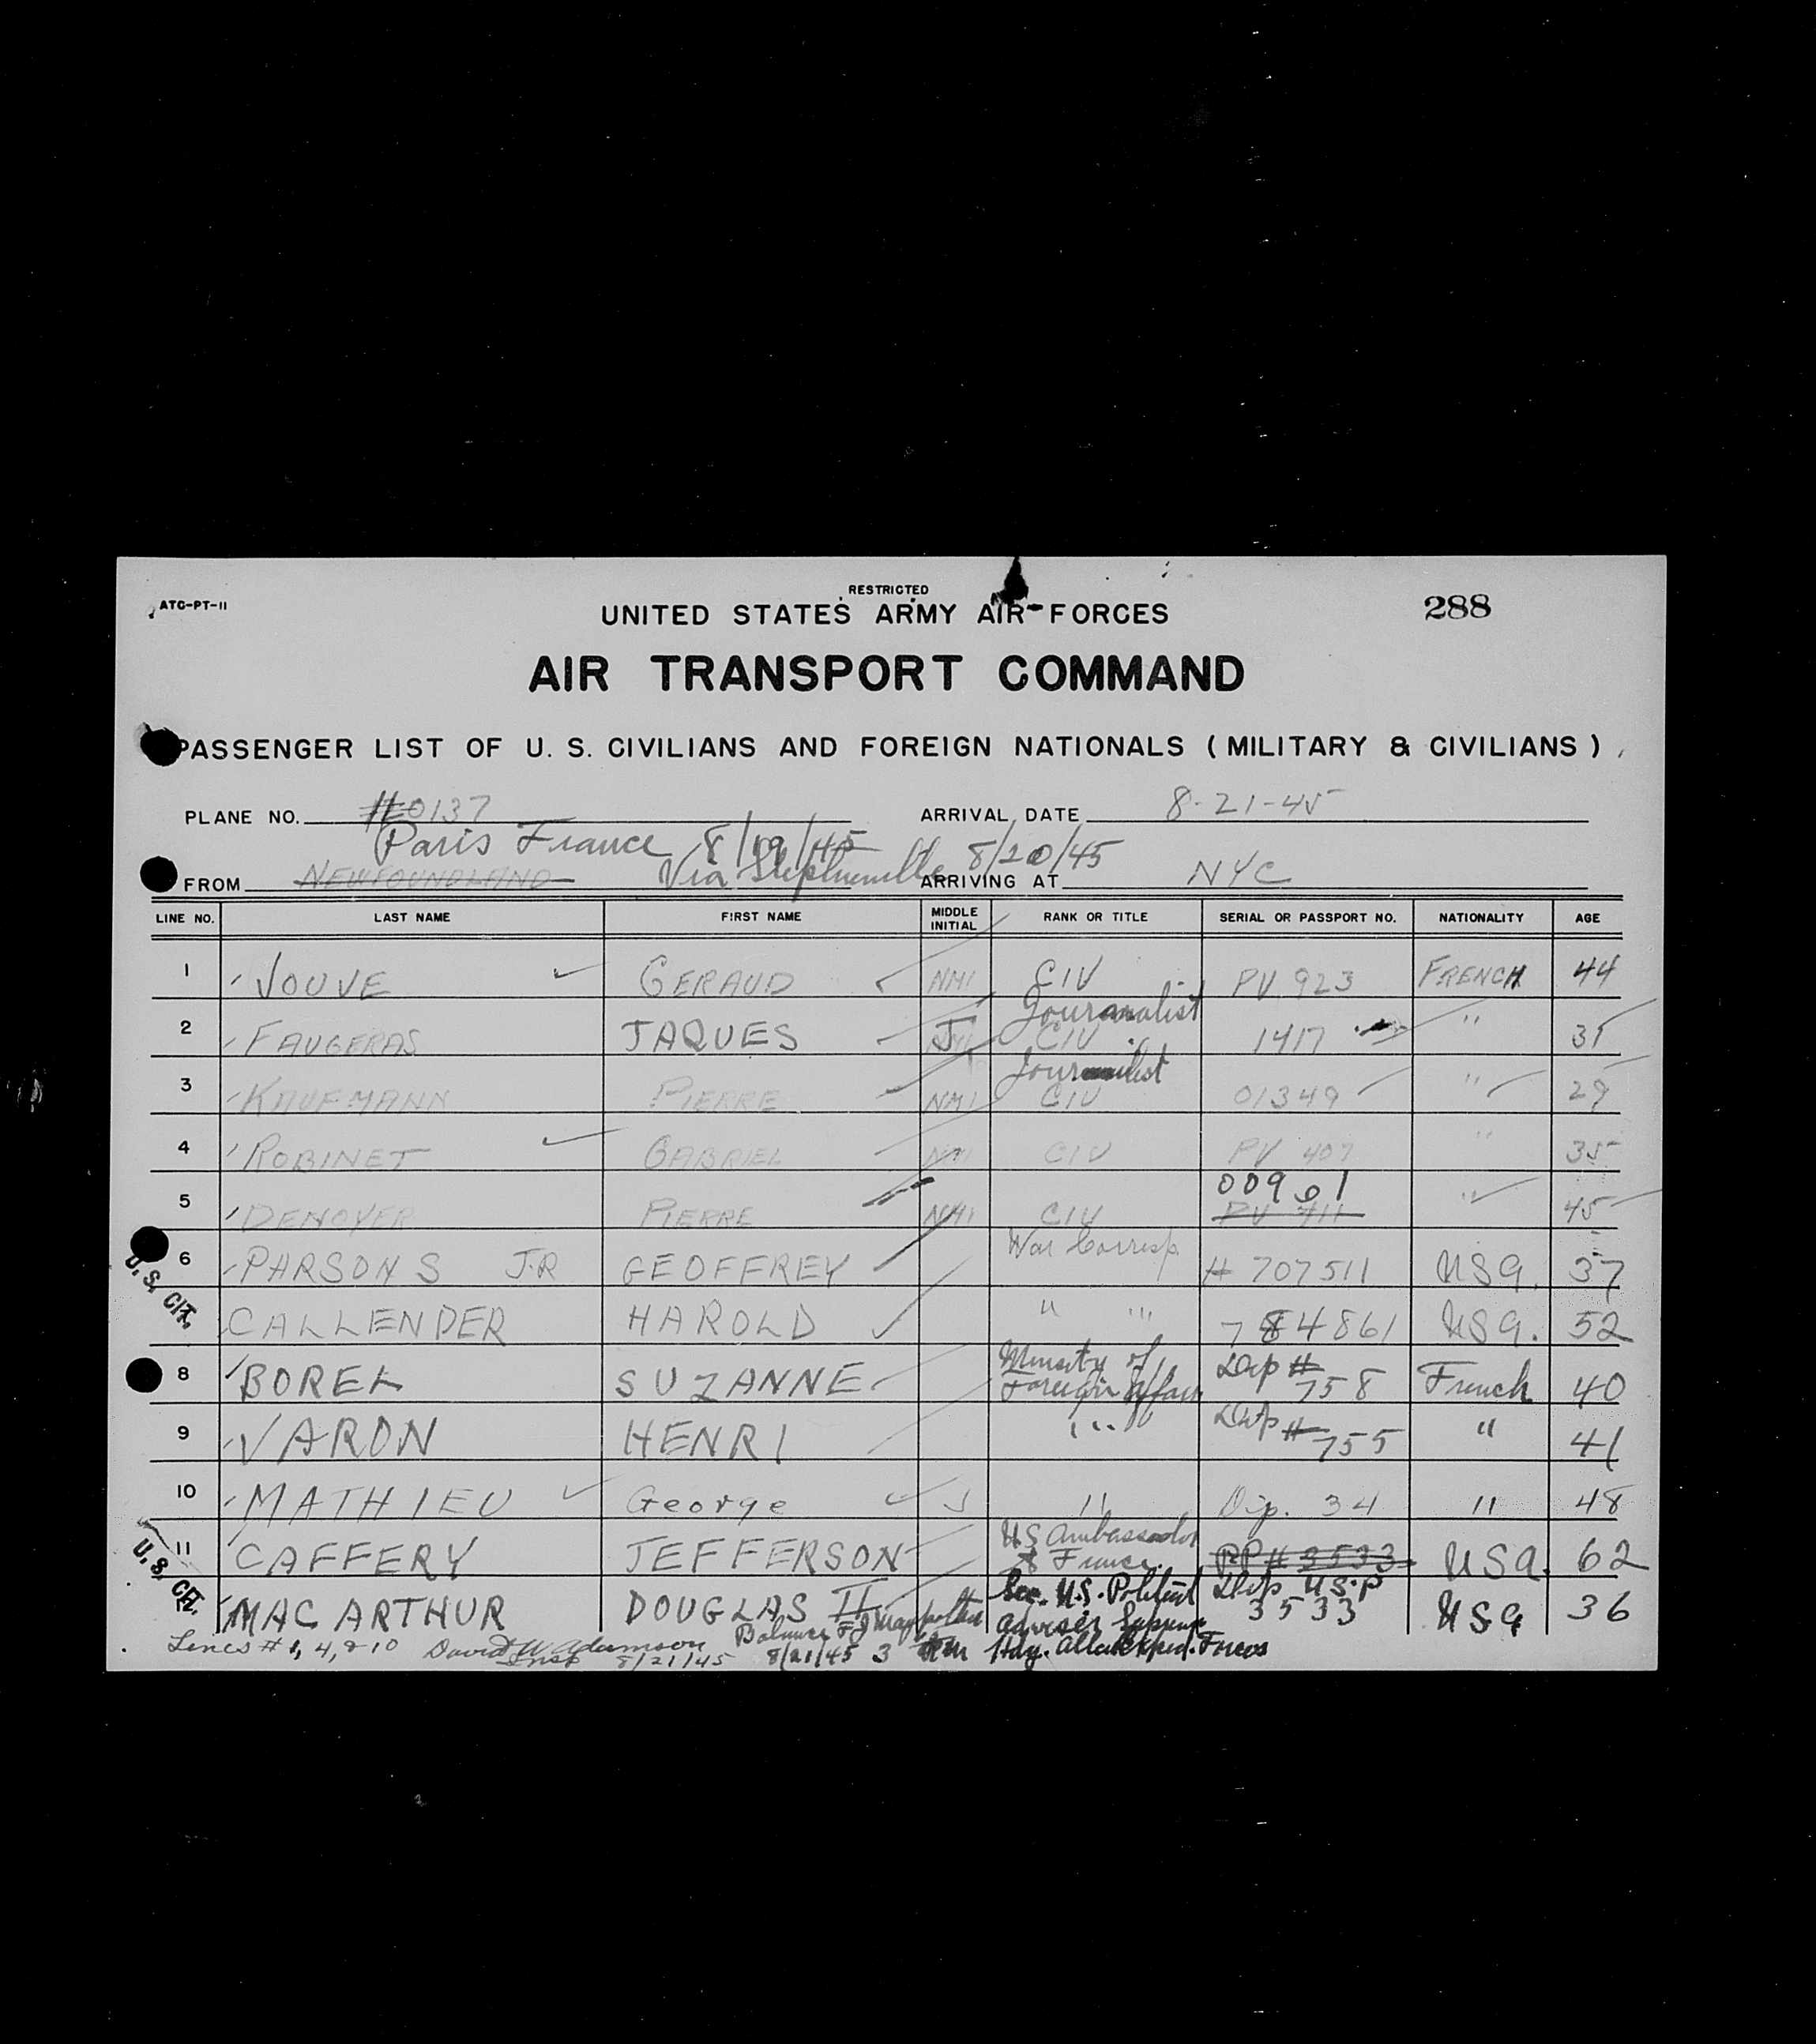 ATC-PT-11
RESTRICTED
UNITED STATES ARMY AIR FORCES
288
AIR TRANSPORT COMMAND
PASSENGER LIST OF U. S. CIVILIANS AND FOREIGN NATIONALS ( MILITARY & CIVILIANS )
PLANE NO. #0137 ARRIVAL DATE 8-21-45
Paris France 8/19/45 Via Stephenville 8/20/45
FROM NEWFOUNDLAND ARRIVING AT NYC
LINE NO. LAST NAME FIRST NAME MIDDLE INITIAL RANK OR TITLE SERIAL OR PASSPORT NO. NATIONALITY AGE
1 JOUVE GERAUD NMI CIV PV 923 FRENCH 44
Journalist
2 FAUGERAS JAQUES J CIV 1417 " 31
Journalist
3 KAUFMANN PIERRE NMI CIV 01349 " 29
4 ROBINET GABRIEL NMI CIV PV 407 " 35
00901
5 DENOYER PIERRE NMI CIV PV 411 " 45
War Corresp.
6 PARSONS JR GEOFFREY # 707511 USA. 37
U.S. CIT.
CALLENDER HAROLD " " 784861 USA. 52
8 BOREL SUZANNE Ministry of Foreign Affairs Dip # 758 French 40
9 VARON HENRI " Dip # 755 " 41
10 MATHIEU George J " Dip. 34 " 48
11 CAFFERY JEFFERSON US Ambassador & France. PP # 3533 USA. 62
U.S. CIT.
MAC ARTHUR DOUGLAS II Sec. U.S. Political Adviser Supreme Hdq. Allied Exped. Forces Dip U.S.P 3533 USA 36
Lines # 1, 4, & 10 David W. Adamson Insp 8/21/45 Balance 8/21/45 3